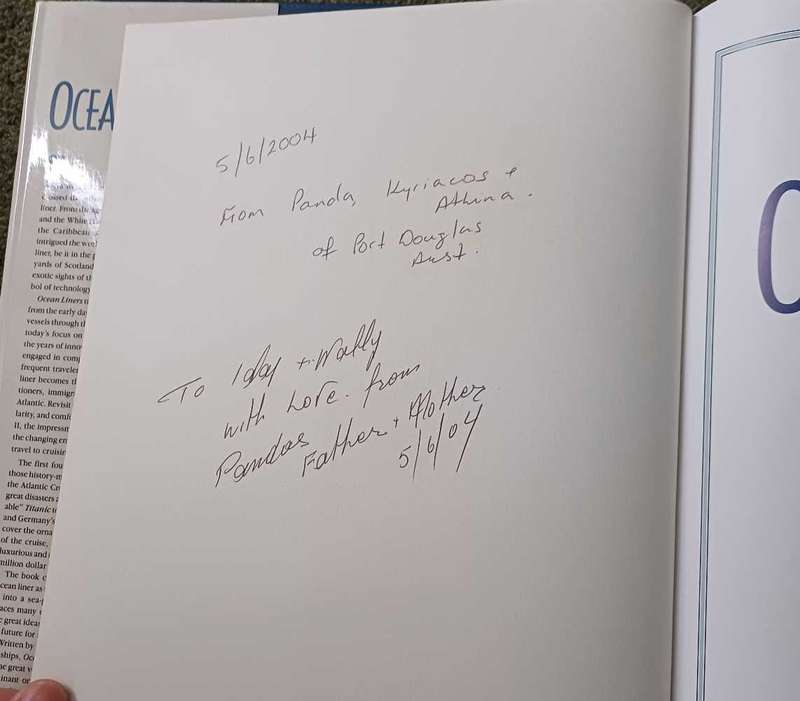 OCEA
liner. From the
and the White
the Caribbean
intrigued the wor
liner, be it in the p
yards of Scotland
exotic sights of th
bol of technology
Ocean Liners
from the early day
vessels through th
today's focus on
the years of innov
engaged in comp
frequent traveler
liner becomes th
tioners, immigr
Atlantic. Revisit
larity, and comf
II, the impressm
the changing en
travel to cruisin
The first fou
those history-m
the Atlantic Cr
great disasters a
able" Titanic t
and Germany's
cover the orna
of the cruise,
luxurious and
million dollar
The book c
ocean liner as
into a sea-
aces many
e great idea
future for
Written by
ships, Oc
he great v
inant or
5/6/2004
From Panda, Kyriacos +
Athina.
of Port Douglas
Aust.
To Iday + Wally
with Love. from
Pandas Father + Mother
5/6/04
O